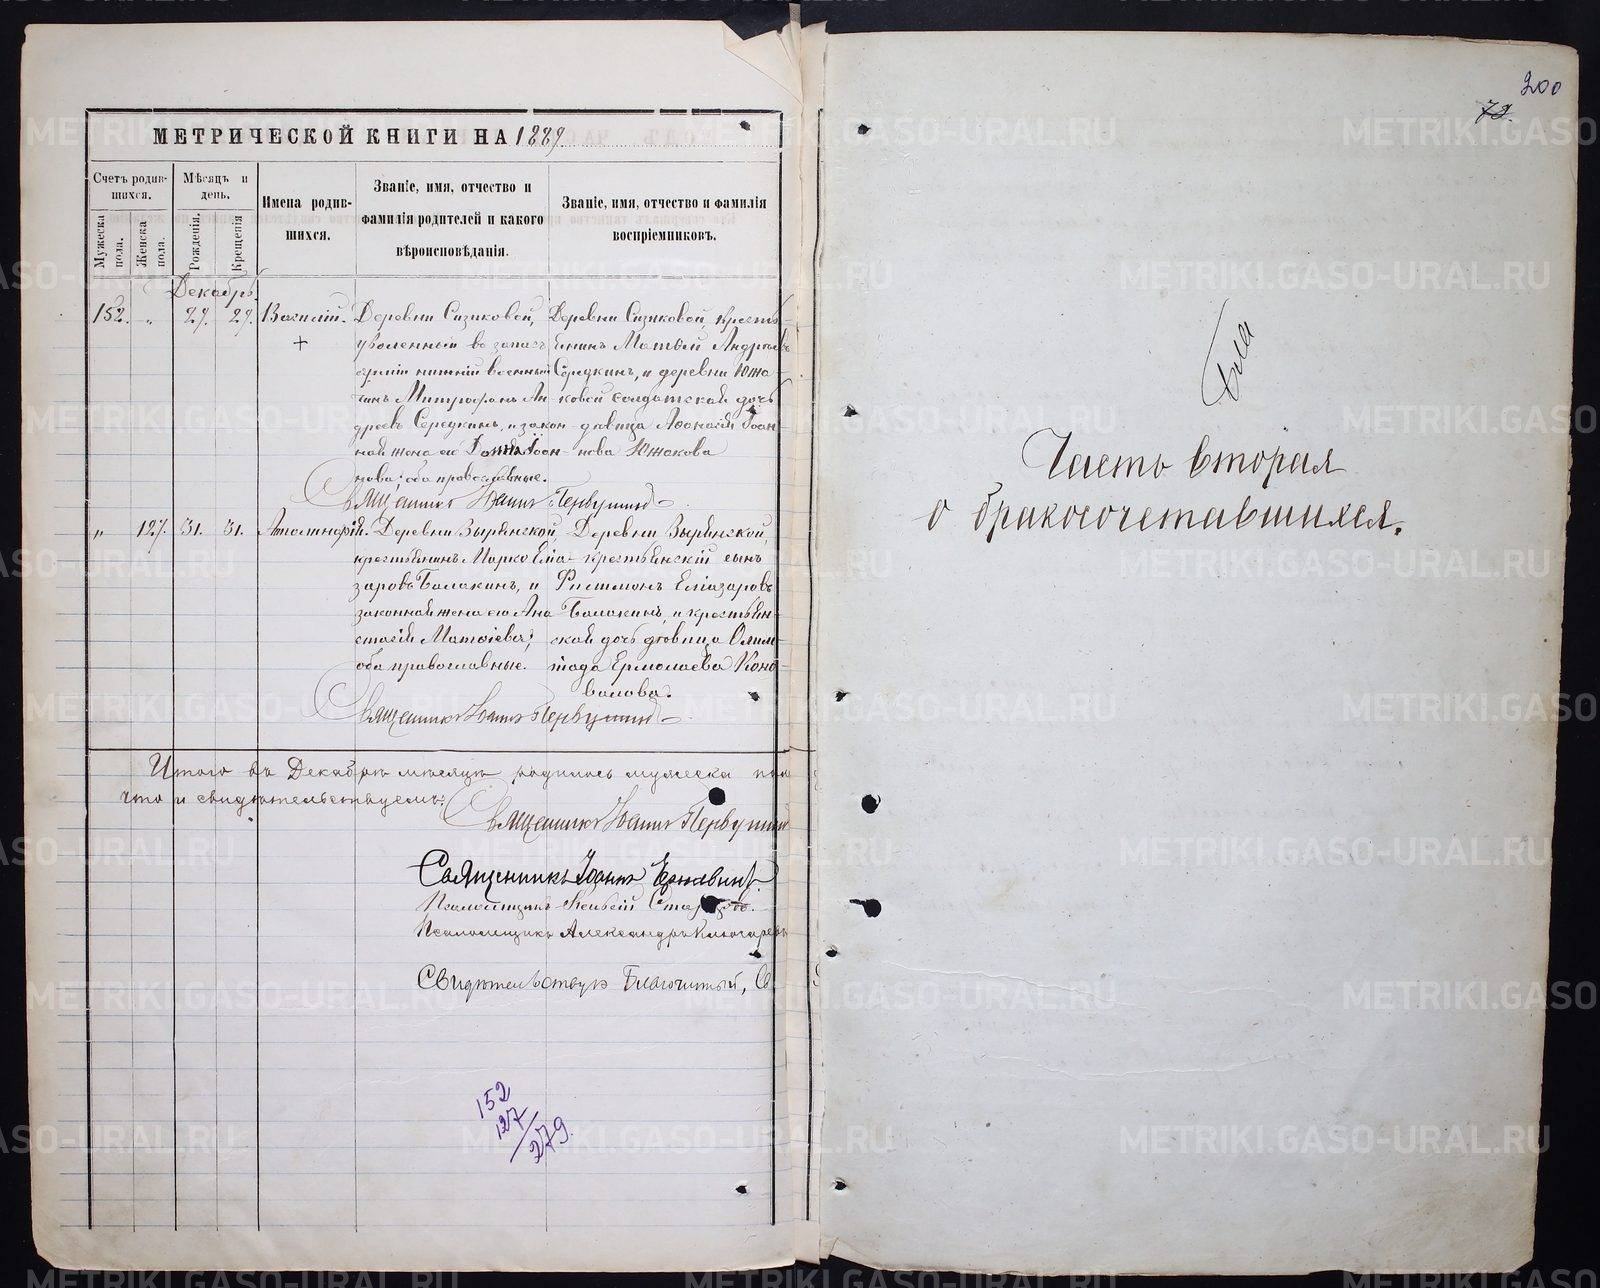 200
72.
МЕТРИЧЕСКОЙ КНИГИ НА 1889
Счетъ родив-
шихся.
Мѣсяцъ и
день.
Мужеска
пола.
Женска
пола.
Рожденія.
Крещенія
Имена родив-
шихся.
Званіе, имя, отчество и
фамилія родителей и какого
вѣроисповѣданія.
Званіе, имя, отчество и фамилія
воспріемниковъ.
Декабрь.
152. „ 29. 29. Василій.
+
Деревни Сизиковой,
уволенный въ запасъ
арміи нижній военный
чинъ Митрофанъ Ан-
дреевъ Середкинъ, и закон-
ная жена его Іоан-
нова; оба православные.
Деревни Сизиковой, кресть-
янинъ Матвей Андреевъ
Середкинъ, и деревни Южа-
ковой солдатская дочь
дѣвица Іоан-
нова Южакова
Священникъ Іоаннъ Первушинъ
„ 127. 31. 31.
Деревни Зырянской,
крестьянинъ Марко Елиа-
заровъ Балакинъ, и
законная жена его Ана-
стасія
оба православные.
Деревни Зырянской,
крестьянскій сынъ
Елиазаровъ
Балакинъ, и крестьян-
ская дочь дѣвица Олим-
піада Ермолаева Коно-
валова.
Священникъ Іоаннъ Первушинъ
Итого въ Декабрѣ мѣсяцѣ родилось мужеска
что и свидѣтельствуемъ:
Священникъ Іоаннъ Первушин
Священникъ Іоаннъ
Псаломщикъ
Псаломщикъ Александръ Ключаревъ
Свидѣтельствую Благочинный, С
152
127
279.
Часть вторая
о бракосочетавшихся.
METRIKI.GASO-URAL.RU